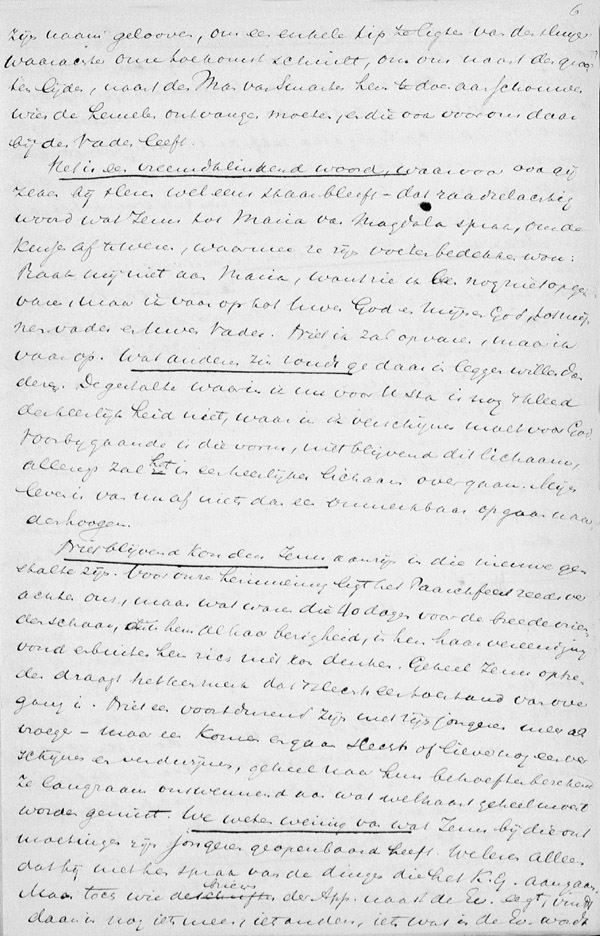 6
zijn naam gelooven, om een enkele tip te ligten van den sluijer
waarachter onze toekomst schuilt, om ons naast den groo
ten lijder, naast den Man van Smarten hem te doen aanschouwen
wien de hemelen ontvangen moeten, en die ook voor ons daar
bij den Vader leeft.
Het is een vreemdklinkend woord, waarvoor ook gij
zeker bij lezen wel eens staan bleeft - dat raadselachtig
woord wat Jezus tot Maria van Magdala sprak, om de
kusjes af te weren, waarmee ze zijn voeten bedekken wou:
Raak mij niet aan Maria, want zie ik ben nog niet opge
varen, maar ik vaar op tot Uwen God en mijnen God, tot mij
nen vader en Uwen Vader. Niet ik zal opvaren, maar ik
vaar op. Wat anderen zin toch daarin leggen willen
deren. De gestalte waarin ik nu voor U sta is nog 't kleed
der heerlijkheid niet, waarin ik verschijnen moet voor God
Voorbijgaande is die vorm, niet blijvend dit lichaam,
allengs zal het in 't verheerlijkte lichaam overgaan. Mijn
leven is van nu af niet dan een onmerkbaar opgaan naar
den hoogen.
Niet blijvend kon dan Jezus aanzijn in die nieuwe ge
stalte zijn. Voor onze herinnering ligt het Paaschfeest reeds ver
achter ons, maar wat waren die 40 dagen voor de breede vrien
denschaar, in hem al haar zaligheid, in hem haar vereeniging
vond en buiten hem zich niet kon denken. Geheel Jezus optre
den draagt het kenmerk dat 't slechts een toestand van over
gang is. Niet een voortdurend zijn met zijn jongeren meer als
vroeger - maar een komen en gaan slechts of liever nog een ver
schijnen en verdwijnen, geheel naar hun behoeften berekend
ze langzaam ontwennend aan wat welhaast geheel moest
worden gemist. We weten weinig van wat Jezus bij die ont
moetingen zijn jongeren geopenbaard heeft. Weten alleen
dat hij met hen sprak van de dingen die het K. G. aangaan.
Maar toch wie de brieven der App. naast de Ev. legt, vindt
daarin nog iets meer, iets anders, iets wat in de Ev. wordt